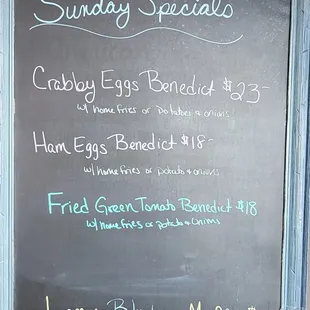 Sunday Specials
Crabby Eggs Benedict $23-
w/ home fries or potatoes & onions
Ham Eggs Benedict $18-
w/ home fries or potato & onions
Fried Green Tomato Benedict $18
w/ home fries or potato & onions